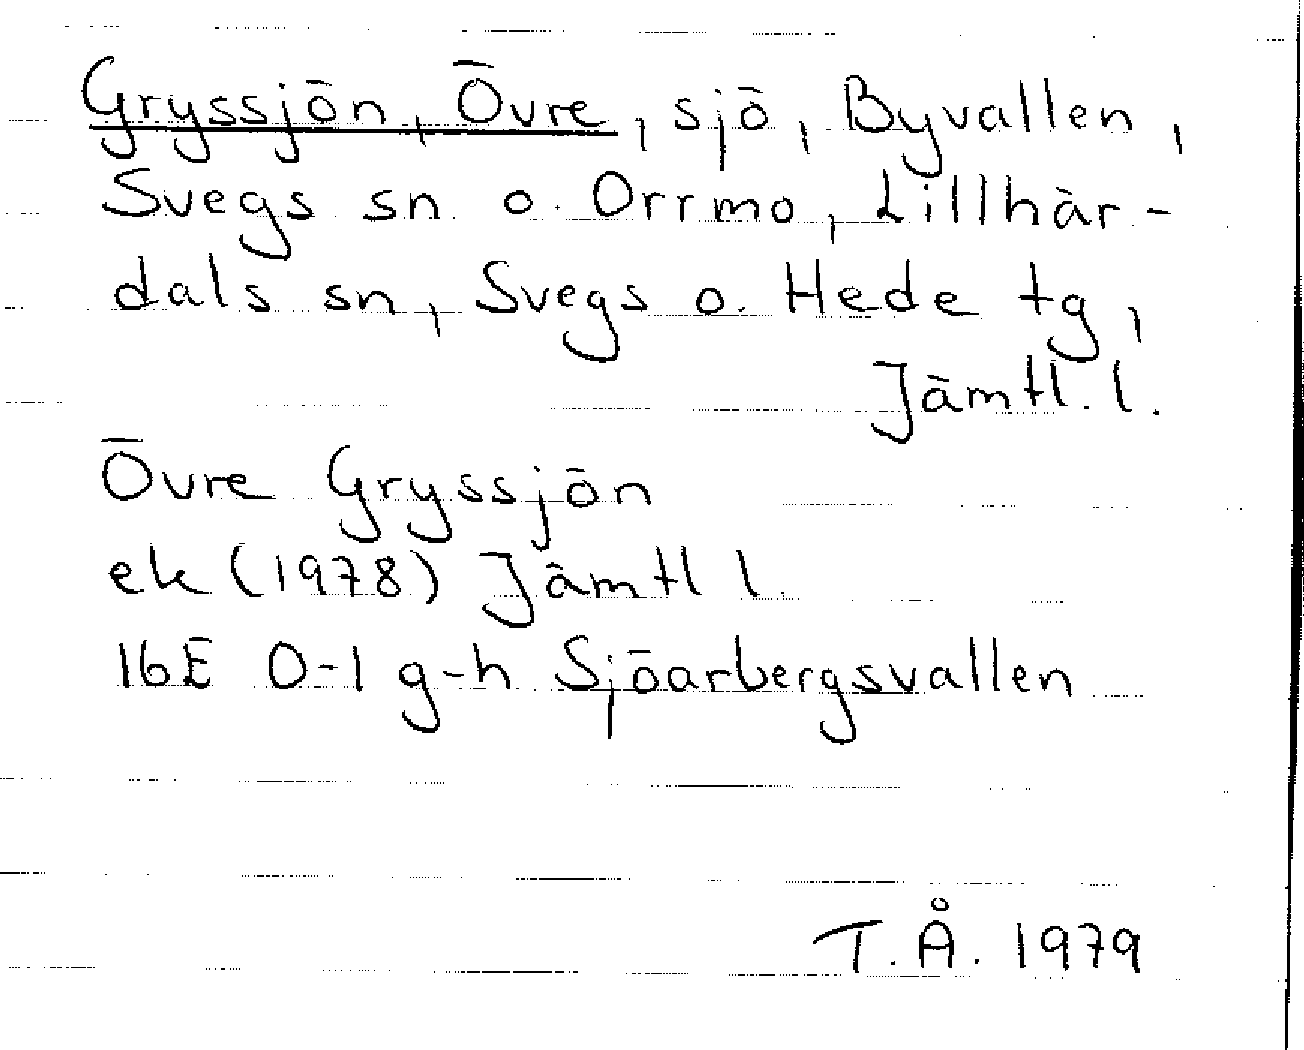 Gryssjön, Övre, sjö, Byvallen,
Svegs sn o. Orrmo, Lillhär-
dals sn, Svegs o. Hede tg,
Jämtl. l.
Övre Gryssjön
ek (1978) Jämtl l.
16E 0-1 g-h Sjöarbergsvallen
T.Å. 1979